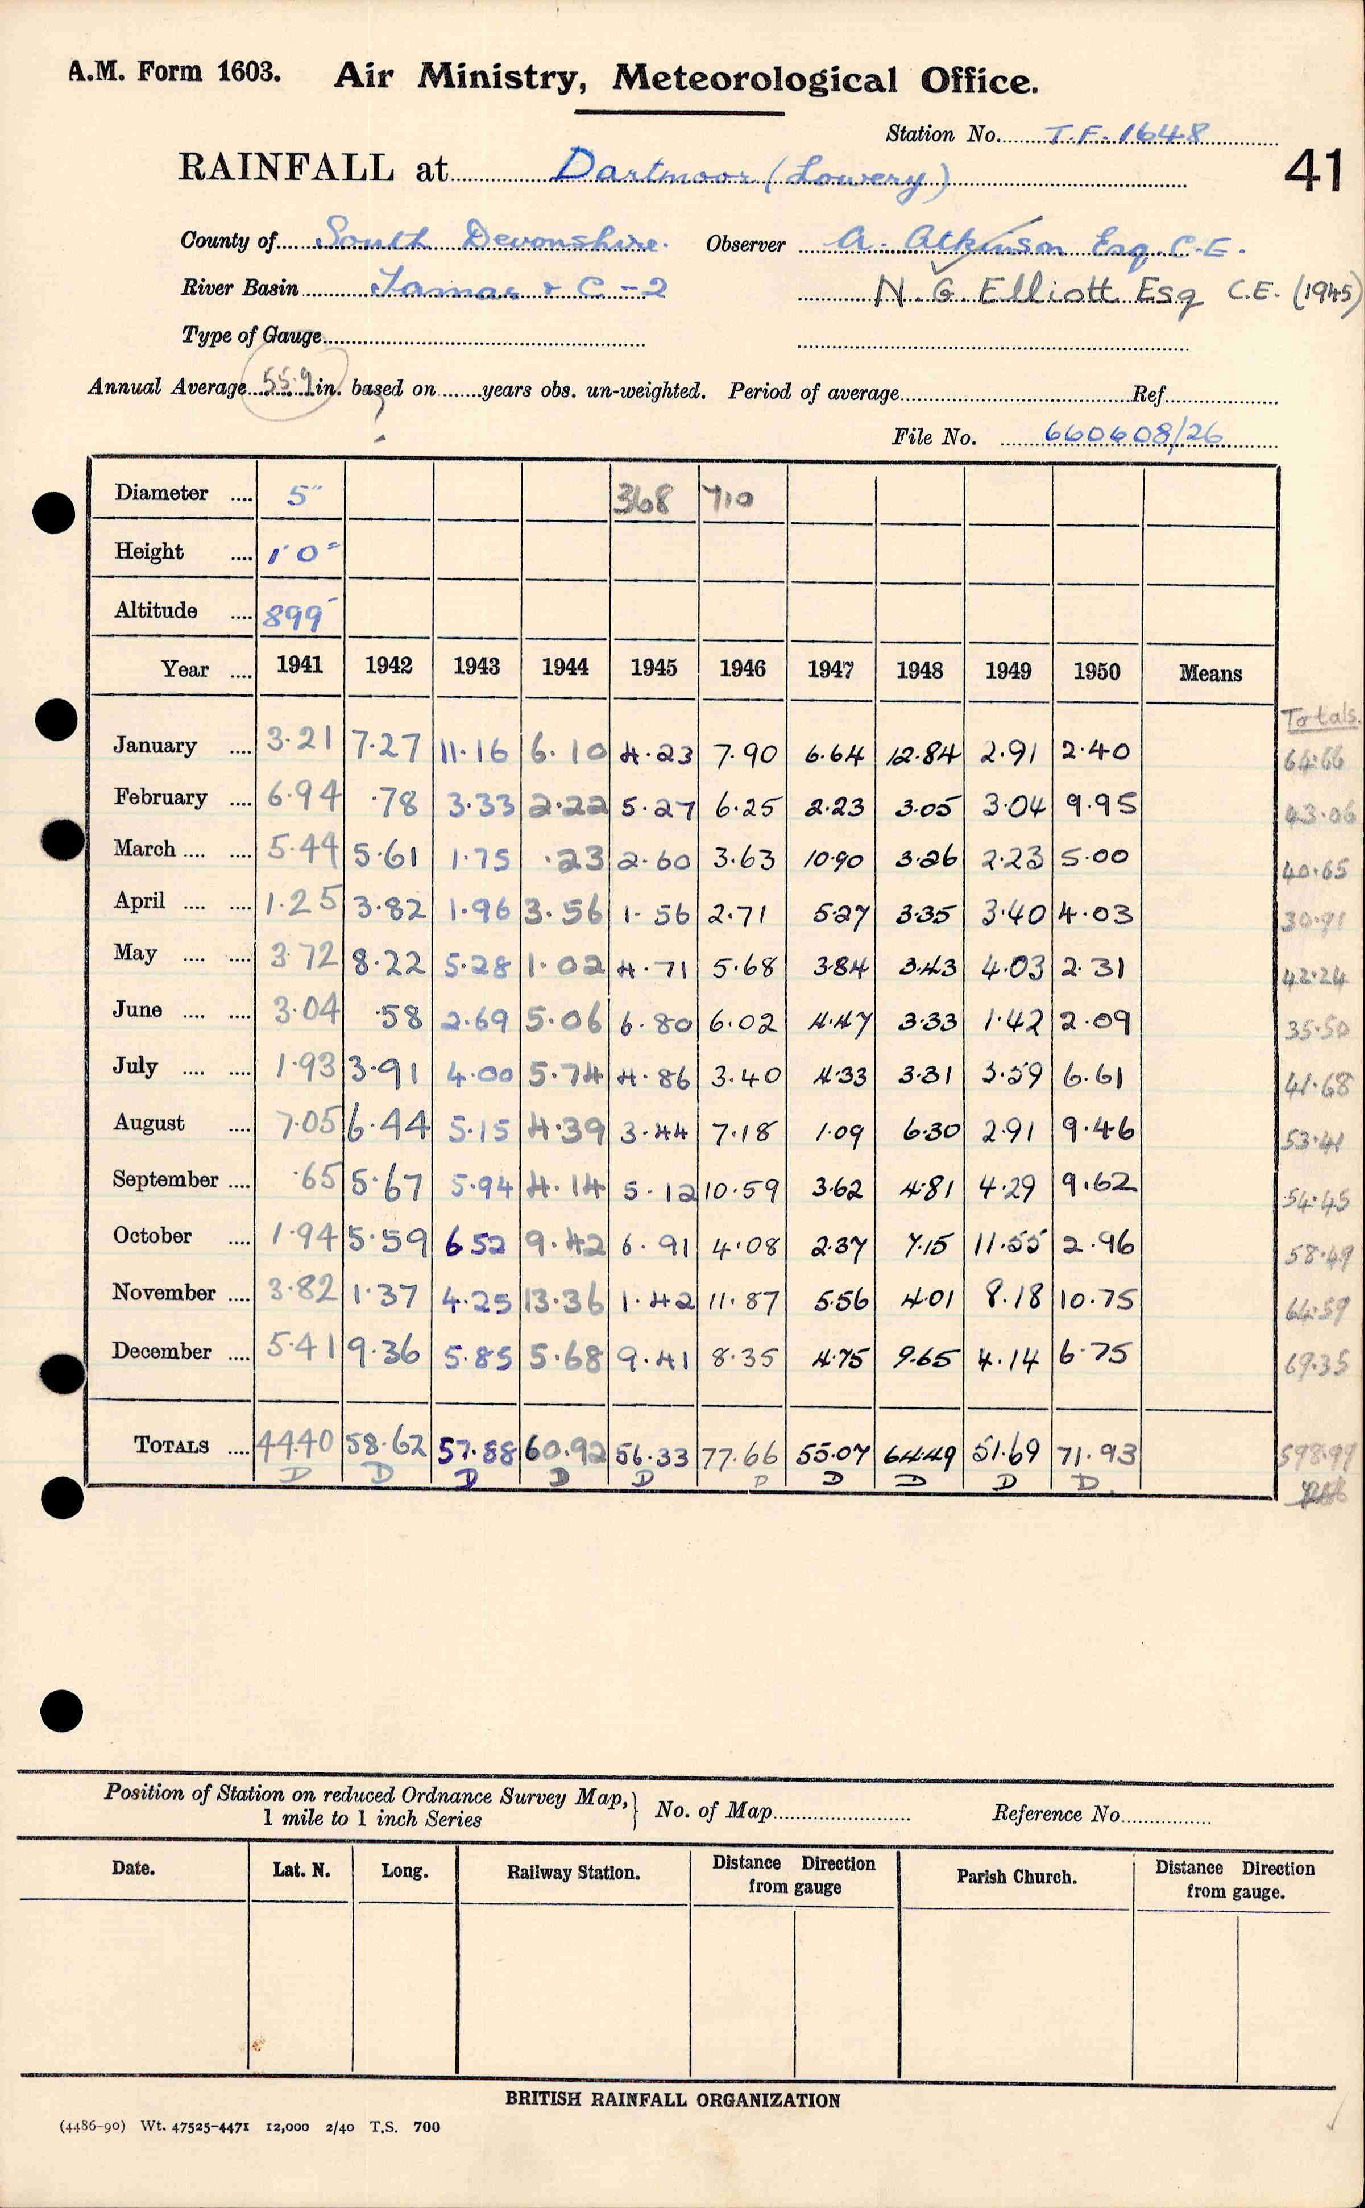 A.M. Form 1603. Air Ministry, Meteorological Office.
Station No. T.F. 1648
RAINFALL at Dartmoor (Lowery) 41
County of South Devonshire. Observer A. Atkinson Esq. C.E.
River Basin Tamar & C - 2 N. G. Elliott Esq C.E. (1945)
Type of Gauge
Annual Average 55.9 in. based on years obs. un-weighted. Period of average Ref
?
File No. 660608/26
Diameter .... 5" 368 710
Height .... 1' 0"
Altitude .... 899'
Year .... 1941 1942 1943 1944 1945 1946 1947 1948 1949 1950 Means
Totals.
January .... 3.21 7.27 11.16 6.10 4.23 7.90 6.64 12.84 2.91 2.40 64.66
February .... 6.94 .78 3.33 2.22 5.27 6.25 2.23 3.05 3.04 9.95 43.06
March .... .... 5.44 5.61 1.75 .23 2.60 3.63 10.90 3.26 2.23 5.00 40.65
April .... .... 1.25 3.82 1.96 3.56 1.56 2.71 5.27 3.35 3.40 4.03 30.91
May .... .... 3.72 8.22 5.28 1.02 4.71 5.68 3.84 3.43 4.03 2.31 42.24
June .... .... 3.04 .58 2.69 5.06 6.80 6.02 4.47 3.33 1.42 2.09 35.50
July .... .... 1.93 3.91 4.00 5.74 4.86 3.40 4.33 3.31 3.59 6.61 41.68
August .... 7.05 6.44 5.15 4.39 3.44 7.18 1.09 6.30 2.91 9.46 53.41
September .... .65 5.67 5.94 4.14 5.12 10.59 3.62 4.81 4.29 9.62 54.45
October .... 1.94 5.59 6 52 9.42 6.91 4.08 2.37 7.15 11.55 2.96 58.49
November .... 3.82 1.37 4.25 13.36 1.42 11.87 5.56 4.01 8.18 10.75 64.59
December .... 5.41 9.36 5.85 5.68 9.41 8.35 4.75 9.65 4.14 6.75 69.35
TOTALS .... 44.40 58.62 57.88 60.92 56.33 77.66 55.07 64.49 51.69 71.93 598.99
D D D D D D D D D D.
Position of Station on reduced Ordnance Survey Map, 1 mile to 1 inch Series } No. of Map Reference No.
Date. Lat. N. Long. Railway Station. Distance Direction from gauge Parish Church. Distance Direction from gauge.
BRITISH RAINFALL ORGANIZATION
(4486-90) Wt. 47525-4471 12,000 2/40 T.S. 700